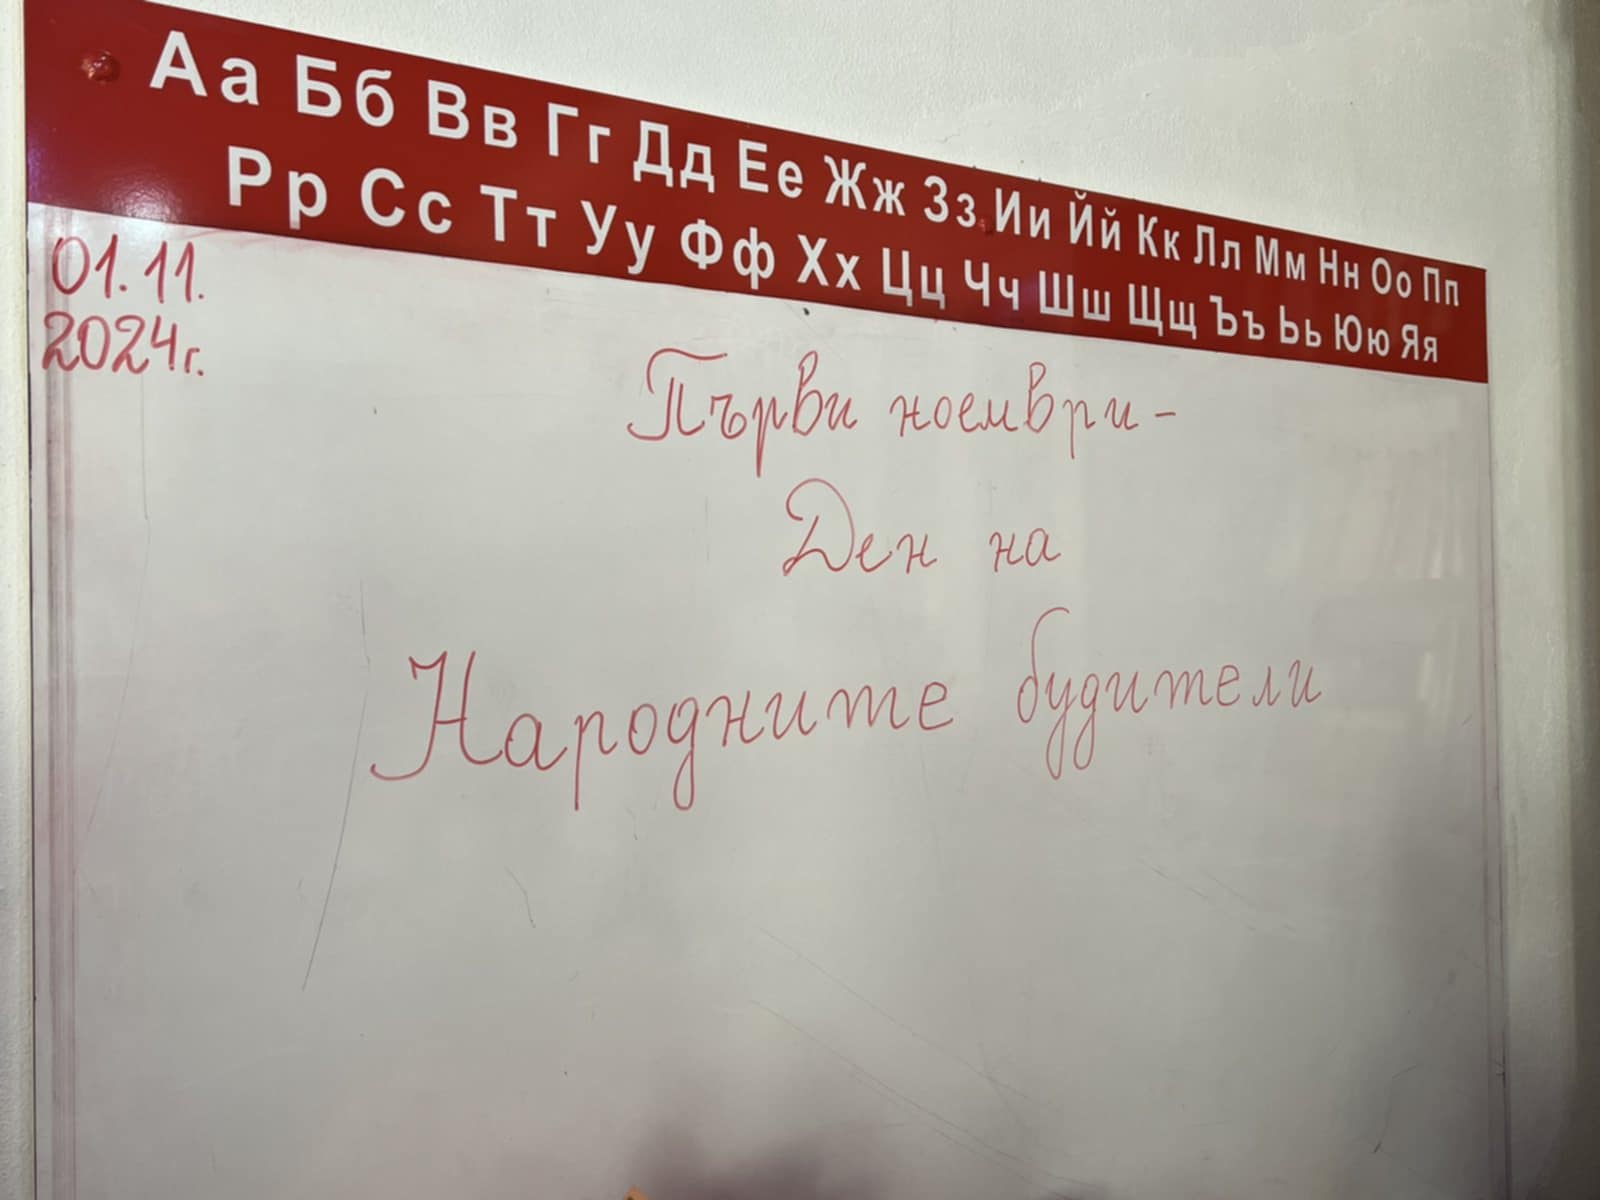 Аа Бб Вв Гг Дд Ее Жж Зз Ии Йй Кк Лл Мм Нн Оо Пп
Рр Сс Тт Уу Фф Хх Цц Чч Шш Щщ Ъъ Ьь Юю Яя
01.11.
2024г.
Първи ноември -
Ден на
Народните будители